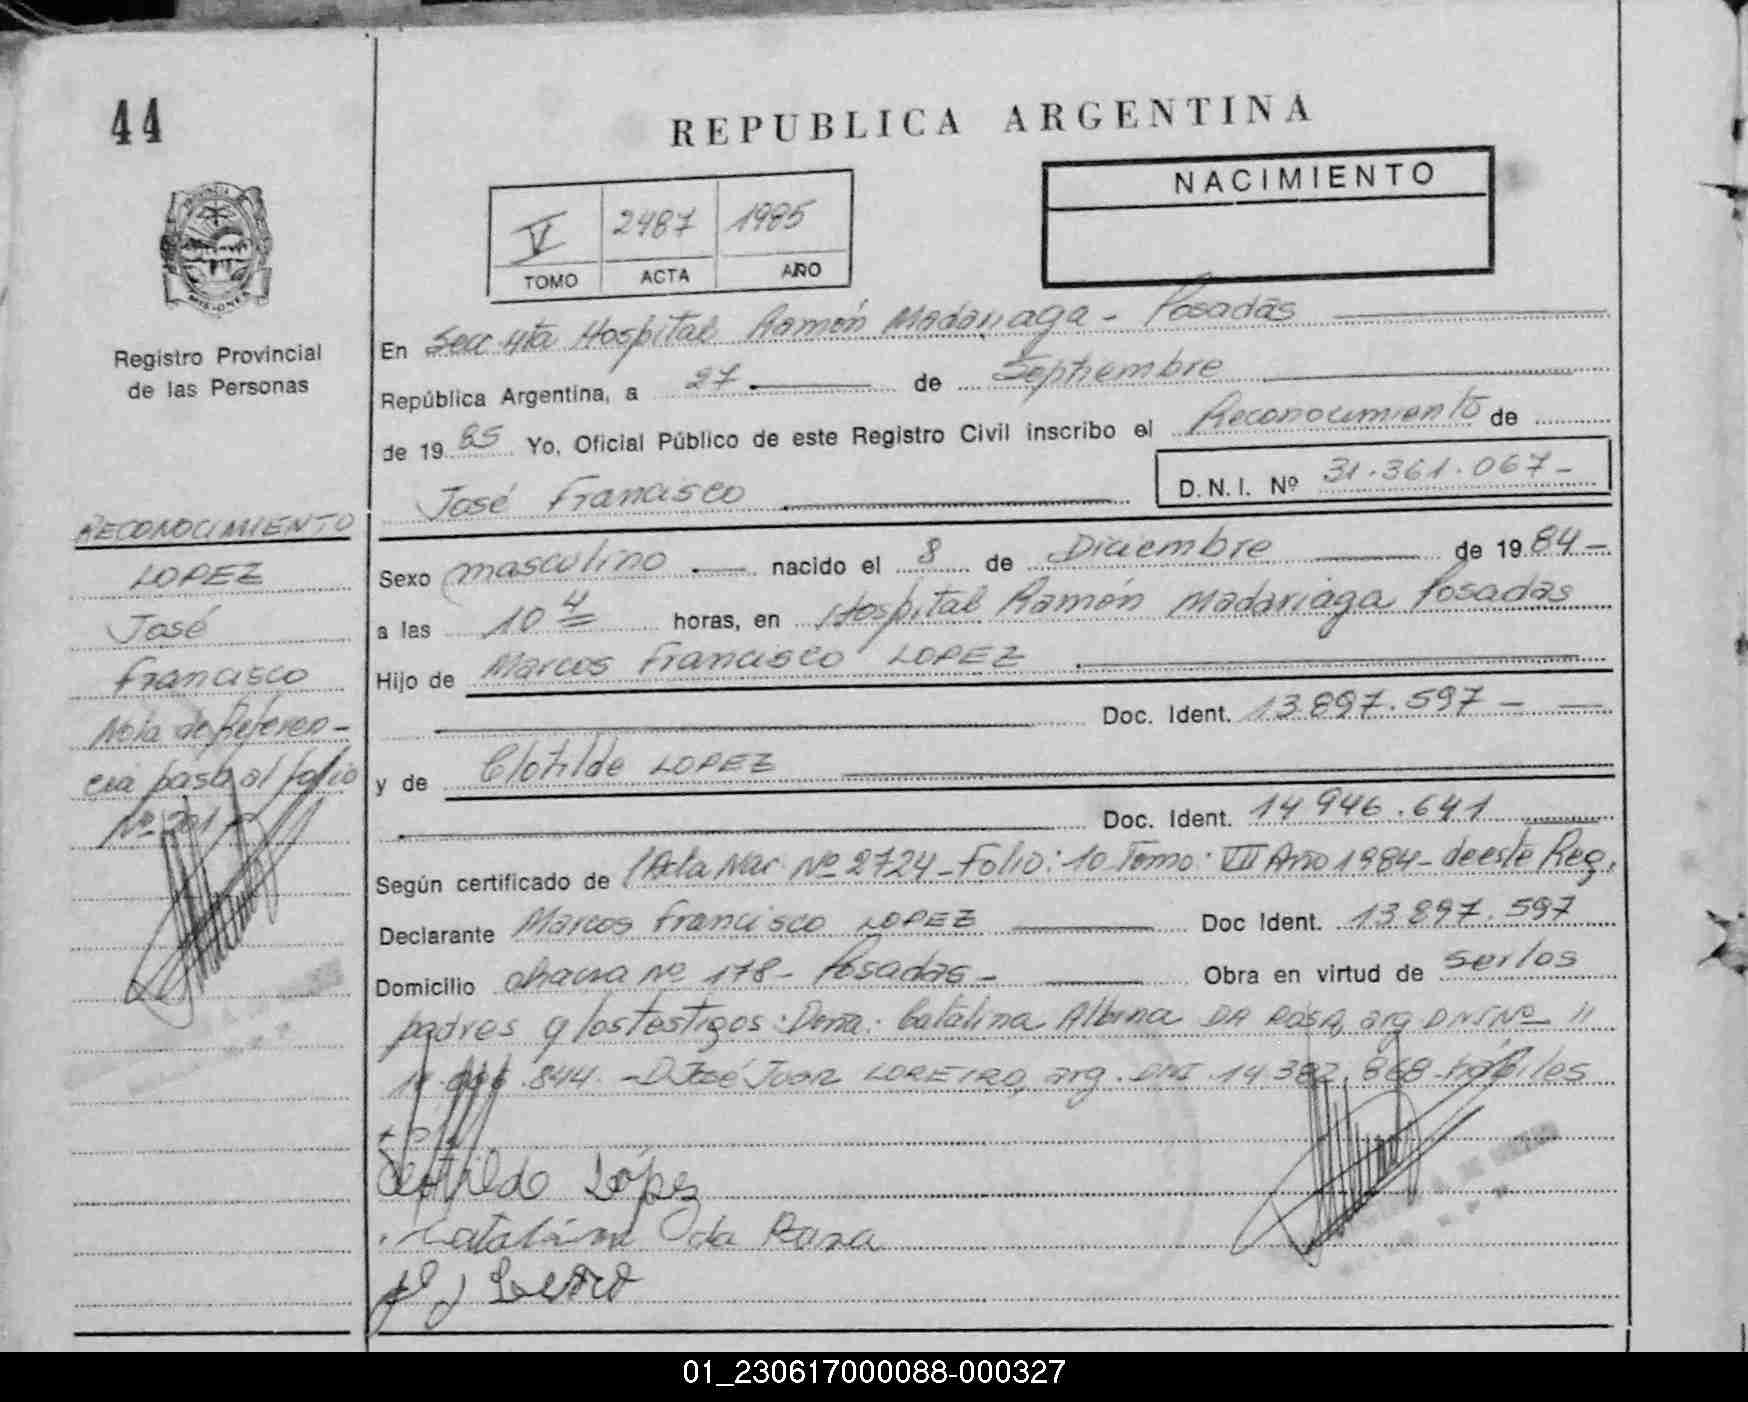 44
REPUBLICA ARGENTINA
NACIMIENTO
V 2487 1985
TOMO ACTA AÑO
PROVINCIA
MISIONES
Registro Provincial
de las Personas
En Secc 4ta Hospital Ramón Madariaga - Posadas
República Argentina, a 27 de Septiembre
de 1985 Yo, Oficial Público de este Registro Civil inscribo el Reconocimiento de
José Francisco D.N.I. Nº 31.361.067-
RECONOCIMIENTO
LOPEZ
José
Francisco
Nota de Referen-
cia pasa al folio
Nº 201
Sexo masculino nacido el 8 de Diciembre de 1984-
a las 10 4 horas, en Hospital Ramón Madariaga Posadas
Hijo de Marcos Francisco LOPEZ
Doc. Ident. 13.897.597-
y de Clotilde LOPEZ
Doc. Ident. 14946.641
Según certificado de Acta Nac. Nº 2724-Folio: 10 Tomo: VII Año 1984- de este Reg.
Declarante Marcos Francisco LOPEZ Doc Ident. 13.897.597
Domicilio chacra Nº 178- Posadas- Obra en virtud de ser los
padres y los testigos: Doña: Catalina Albina DA ROSA, arg DNI Nº 11
.844.-D. José Juan LOREIRO, arg. DNI 14.382.868-hábiles
Clotilde López
Catalina da Rosa
01_230617000088-000327